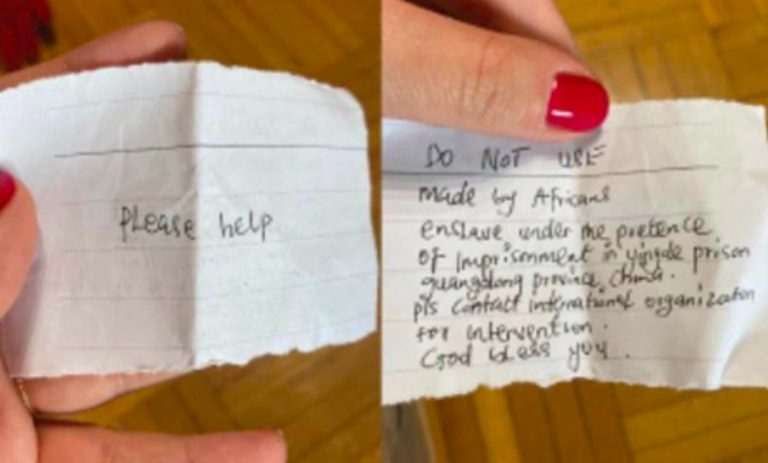 please help
DO NOT USE
made by Africans
enslave under the pretence
of imprisonment in yingde prison
guangdong province, china.
pls contact international organization
for intervention.
God bless you.